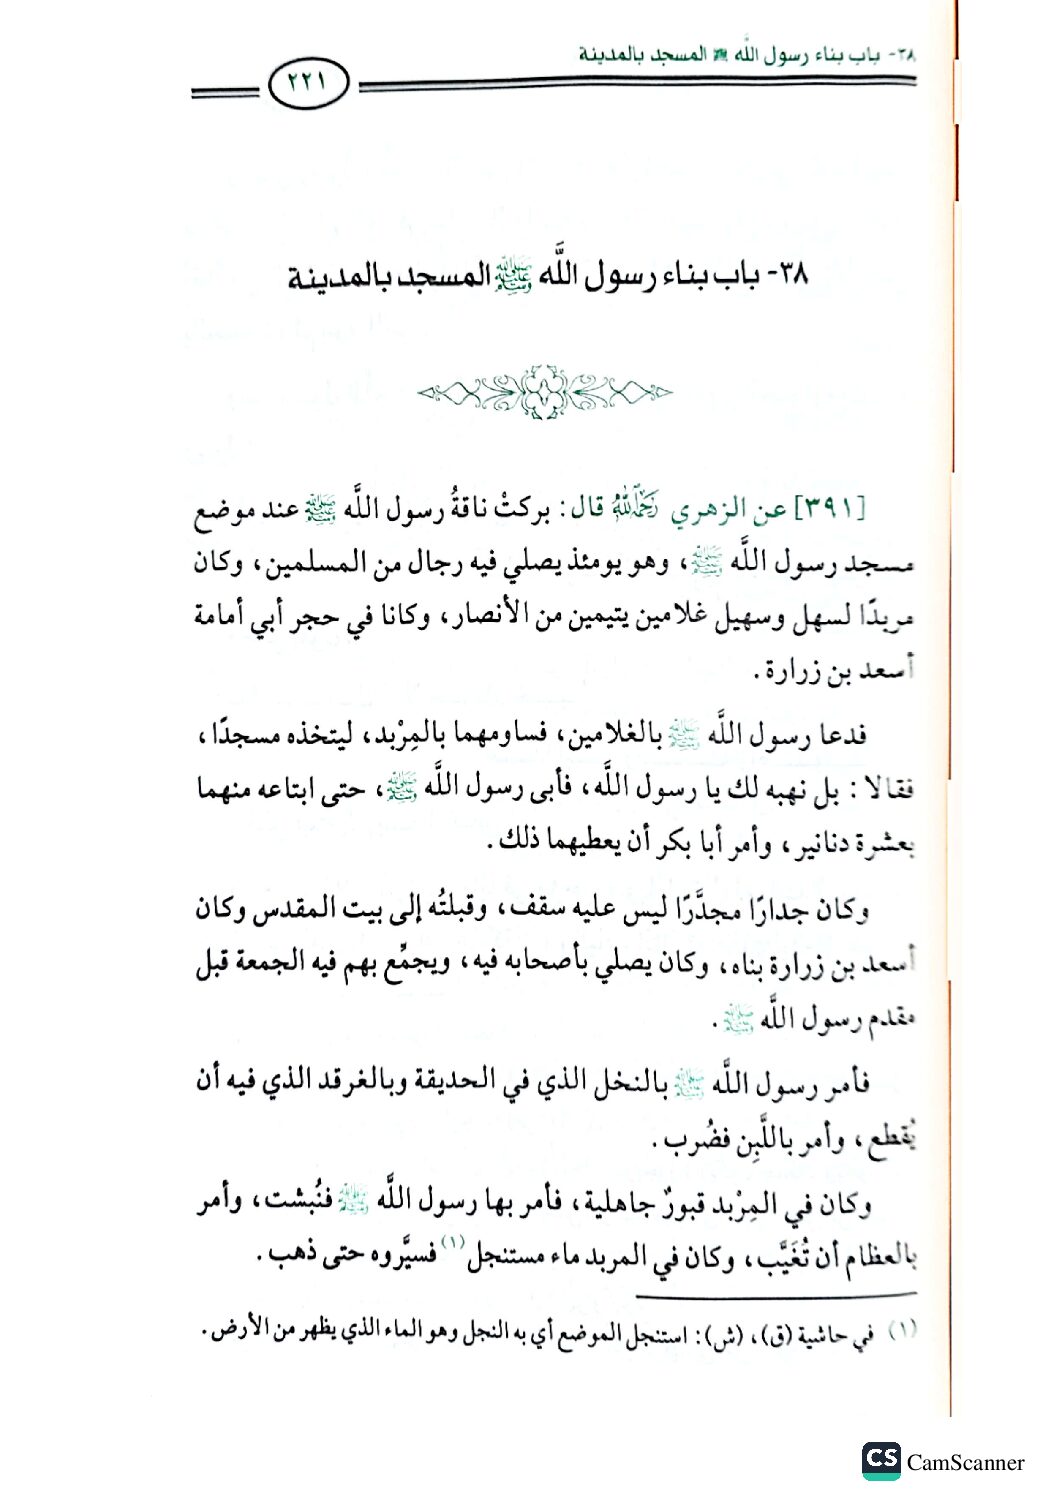 ٣٨- باب بناء رسول اللَّه ﷺ المسجد بالمدينة
٢٢١
٣٨- باب بناء رسول اللَّه ﷺ المسجد بالمدينة
[٣٩١] عن الزهري رَحِمَهُ اللَّهُ قال: بركتْ ناقةُ رسول اللَّه ﷺ عند موضع
مسجد رسول اللَّه ﷺ، وهو يومئذ يصلي فيه رجال من المسلمين، وكان
مربدًا لسهل وسهيل غلامين يتيمين من الأنصار، وكانا في حجر أبي أمامة
أسعد بن زرارة.
فدعا رسول اللَّه ﷺ بالغلامين، فساومهما بالمِرْبد، ليتخذه مسجدًا،
فقالا: بل نهبه لك يا رسول اللَّه، فأبى رسول اللَّه ﷺ، حتى ابتاعه منهما
بعشرة دنانير، وأمر أبا بكر أن يعطيهما ذلك.
وكان جدارًا مجدَّرًا ليس عليه سقف، وقبلتُه إلى بيت المقدس وكان
أسعد بن زرارة بناه، وكان يصلي بأصحابه فيه، ويجمِّع بهم فيه الجمعة قبل
مقدم رسول اللَّه ﷺ.
فأمر رسول اللَّه ﷺ بالنخل الذي في الحديقة وبالغرقد الذي فيه أن
يُقطع، وأمر باللَّبِن فضُرب.
وكان في المِرْبد قبورٌ جاهلية، فأمر بها رسول اللَّه ﷺ فنُبشت، وأمر
بالعظام أن تُغَيَّب، وكان في المربد ماء مستنجل(١) فسيَّروه حتى ذهب.
(١) في حاشية (ق)، (ش): استنجل الموضع أي به النجل وهو الماء الذي يظهر من الأرض.
CS CamScanner